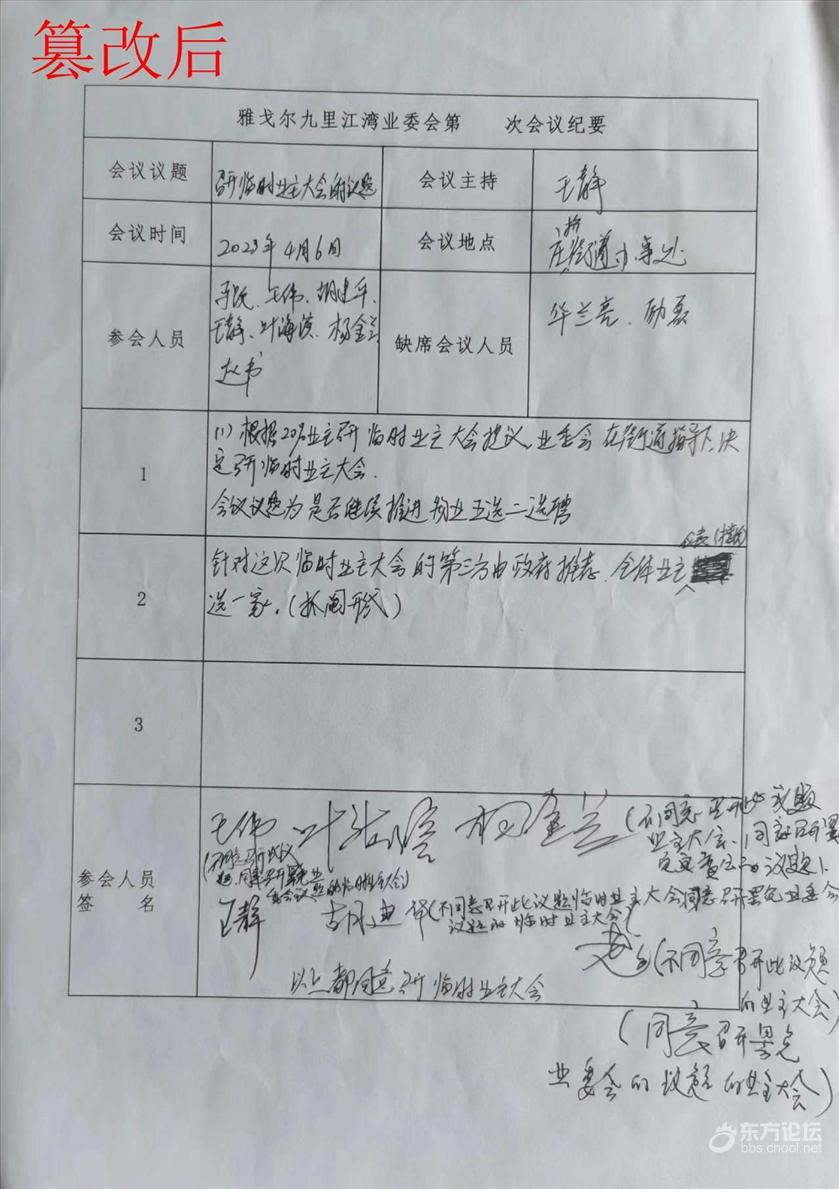 篡改后
雅戈尔九里江湾业委会第 次会议纪要
会议议题
召开临时业主大会的议题
会议主持
王静
会议时间
2023年4月6日
会议地点
街道办事处
参会人员
王伟、胡建平、
王静、叶海滨、杨金兰
赵书
缺席会议人员
华兰亮、励磊
1
(1)根据20%业主召开临时业主大会提议,业委会在街道指导下,决
定召开临时业主大会.
会议议题为是否继续推进物业五选二选聘
2
代表(楼长)
针对这次临时业主大会的第三方由政府推荐.全体业主
选一家.(抓阄形式)
3
参会人员
签 名
王伟
(不同意召开此议
题,同意召开罢免业
委会议题的临时业主大会)
杨金兰
(不同意召开此议题
业主大会、同意召开罢
免业委会的议题).
王静
胡建平(不同意召开此议题临时业主大会同意召开罢免业委会
议题的临时业主大会)
(不同意召开此议题
的业主大会)
(同意召开罢免
业委会的议题的业主大会)
以上都同意召开临时业主大会
东方论坛
bbs.cnool.net